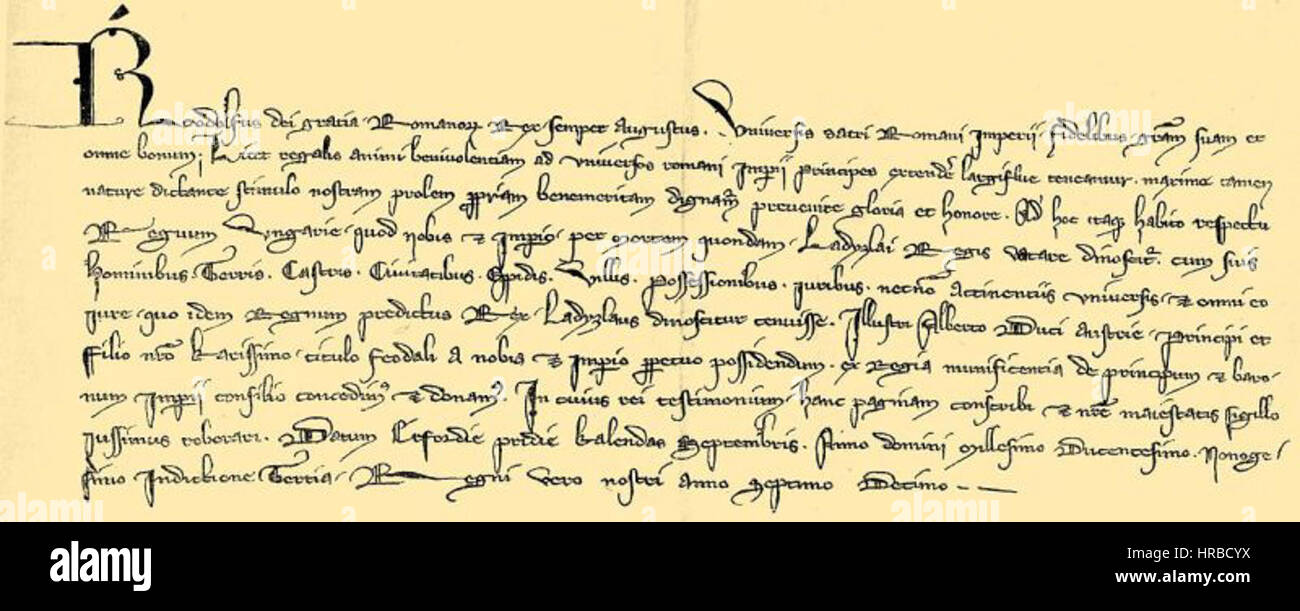 Rudolfus dei gratia Romanorꝝ Rex semper Augustus. Universis sacri Romani Imperii fidelibus grām suam et
omne bonum. Licet regalis animi benivolentiam ad universos romani Impii principes extendere largiflue teneamur. maxime tamen
nature dictante stimulo nostram prolem ppriam benemeritam dignam prevenire gloria et honore. Ad hoc itaqꝫ habito respectu
Regnum Ungarie quod nobis et Impio per mortem quondam Ladyzlai Regis vacare dinoscitr. cum suis
hominibus. Terris. Castris. Civitatibus. Opidis. Villis. possessionibus. iuribus. necnō Attinentiis universis et omni eo
iure quo idem Regnum predictus Rex Ladyzlaus dinoscitur tenuisse. Illustri Alberto Duci Austrie Principi et
Filio nrō karissimo titulo feodali a nobis et Impio ppetuo possidendum. ex Regia munificentia de principum et baro-
num Impii consilio concedimꝰ et donamꝰ. In cuius rei testimonium hanc paginam conscribi et nrē maiestatis sigillo
iussimus roborari. Datum Erfordie pridie kalendas Septembris. Anno domini Millesimo Ducentesimo. Nonoge-
simo Indictione Tertia. Regni vero nostri anno Septimo Decimo
alamy
HRBCYX
www.alamy.com